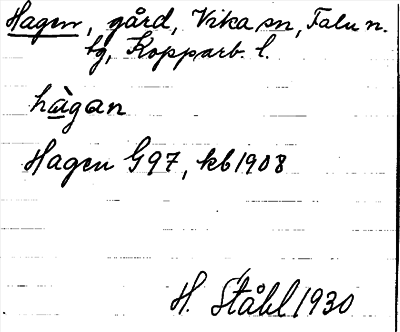 Hagen, gård, Vika sn, Falu n.
bg, Kopparb. l.
hàgan
Hagen G97, kb 1908
H. Ståhl 1930